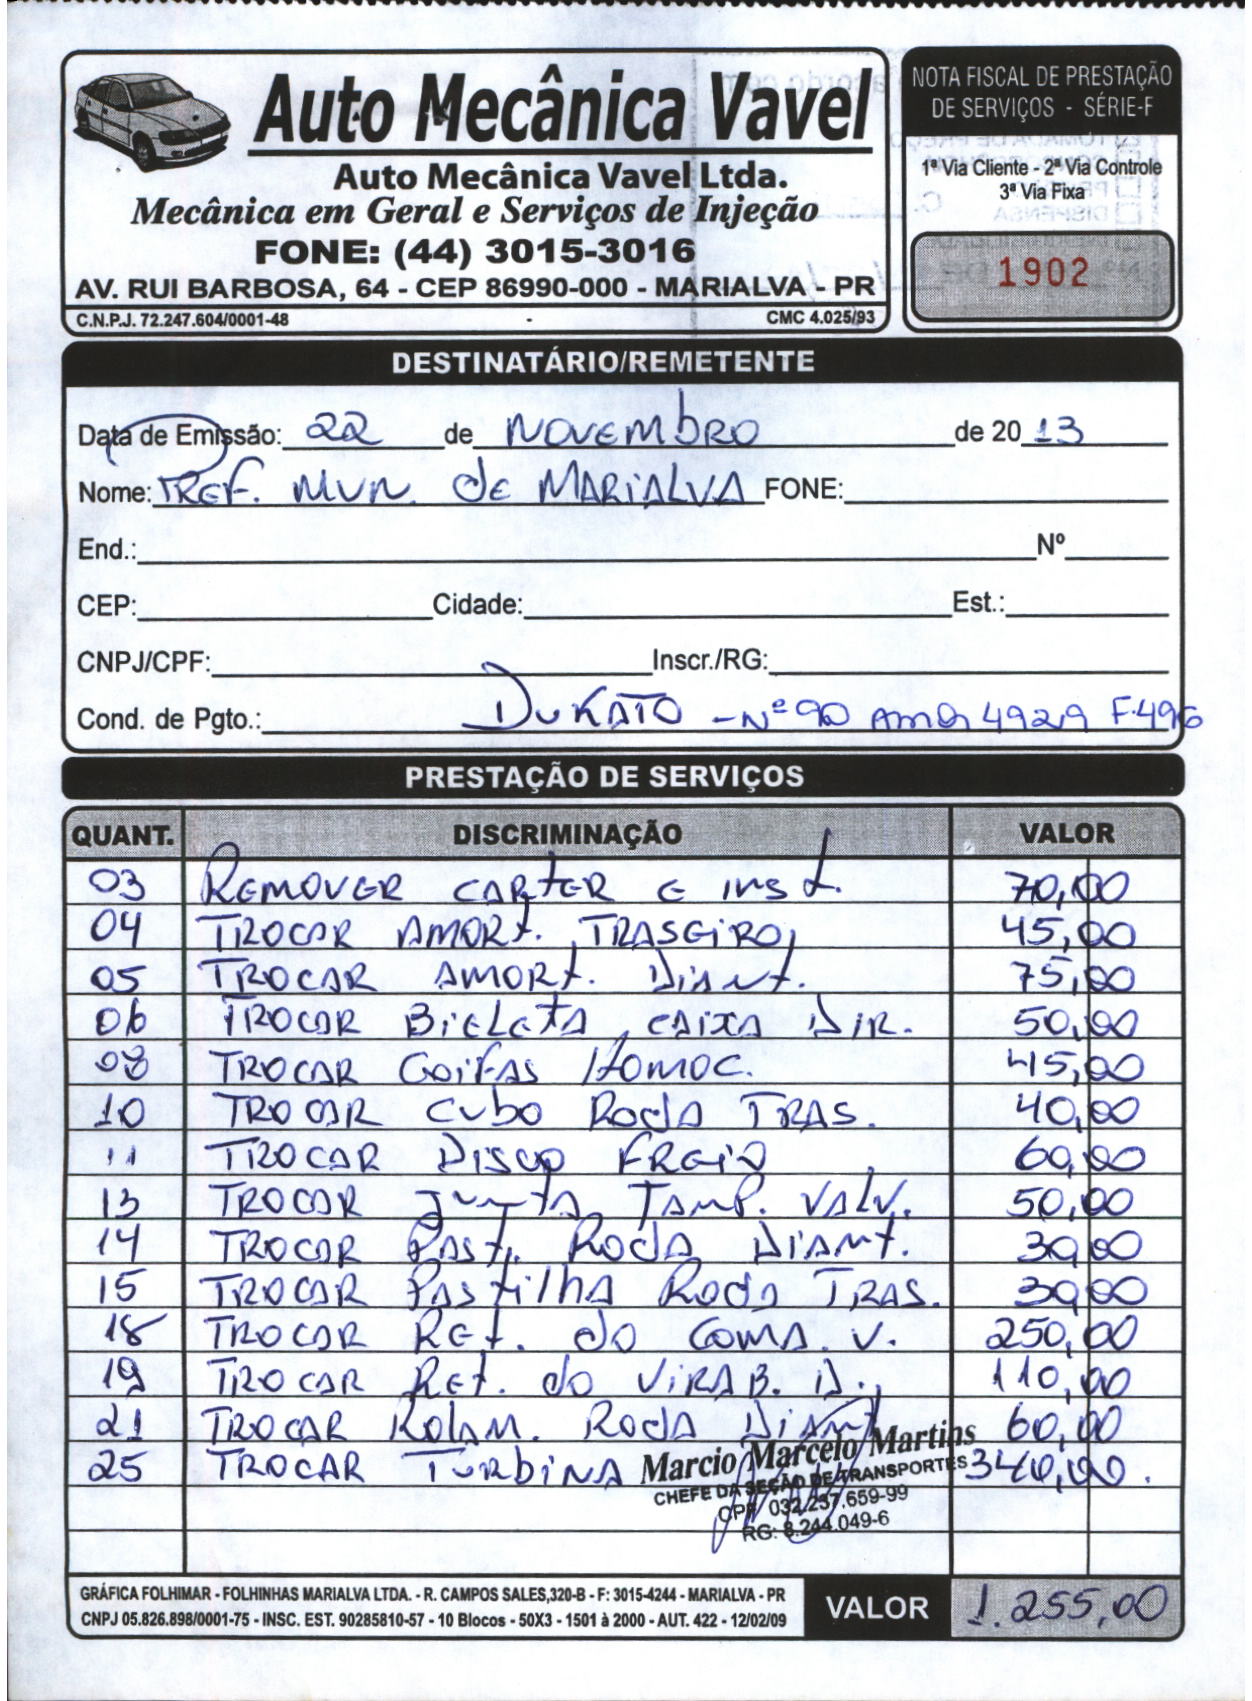 Auto Mecânica Vavel
Auto Mecânica Vavel Ltda.
Mecânica em Geral e Serviços de Injeção
FONE: (44) 3015-3016
AV. RUI BARBOSA, 64 - CEP 86990-000 - MARIALVA - PR
C.N.P.J. 72.247.604/0001-48 - CMC 4.025/93
NOTA FISCAL DE PRESTAÇÃO
DE SERVIÇOS - SÉRIE-F
1ª Via Cliente - 2ª Via Controle
3ª Via Fixa
1902
DESTINATÁRIO/REMETENTE
Data de Emissão: 22 de NOVEMbRO de 20 13
Nome: PREF. MUN. de MARIALVA FONE:
End.: Nº
CEP: Cidade: Est.:
CNPJ/CPF: Inscr./RG:
Cond. de Pgto.: DUKATO - Nº 90 4929 F-496
PRESTAÇÃO DE SERVIÇOS
QUANT. DISCRIMINAÇÃO VALOR
03 REMOVER CARTER E INST. 70,00
04 TROCAR AMORT. TRASEIRO, 45,00
05 TROCAR AMORT. DIANT. 75,00
06 TROCAR BIELETA CAIXA DIR. 50,00
08 TROCAR COIFAS HOMOC. 45,00
10 TROCAR CUBO RODA TRAS. 40,00
11 TROCAR DISCO FREIO 60,00
13 TROCAR JUNTA TAMP. VALV. 50,00
14 TROCAR PAST. RODA DIANT. 30,00
15 TROCAR PASTILHA RODA TRAS. 30,00
18 TROCAR RET. do COMA. V. 250,00
19 TROCAR RET. do VIRAB. D. 110,00
21 TROCAR ROLAM. RODA DIANT 60,00
25 TROCAR TURBINA 340,00.
Marcio Marcelo Martins
CHEFE DA SEÇÃO DE TRANSPORTES
CPF 032.237.659-99
RG: 8.244.049-6
GRÁFICA FOLHIMAR - FOLHINHAS MARIALVA LTDA. - R. CAMPOS SALES,320-B - F: 3015-4244 - MARIALVA - PR
CNPJ 05.826.898/0001-75 - INSC. EST. 90285810-57 - 10 Blocos - 50X3 - 1501 à 2000 - AUT. 422 - 12/02/09
VALOR 1.255,00